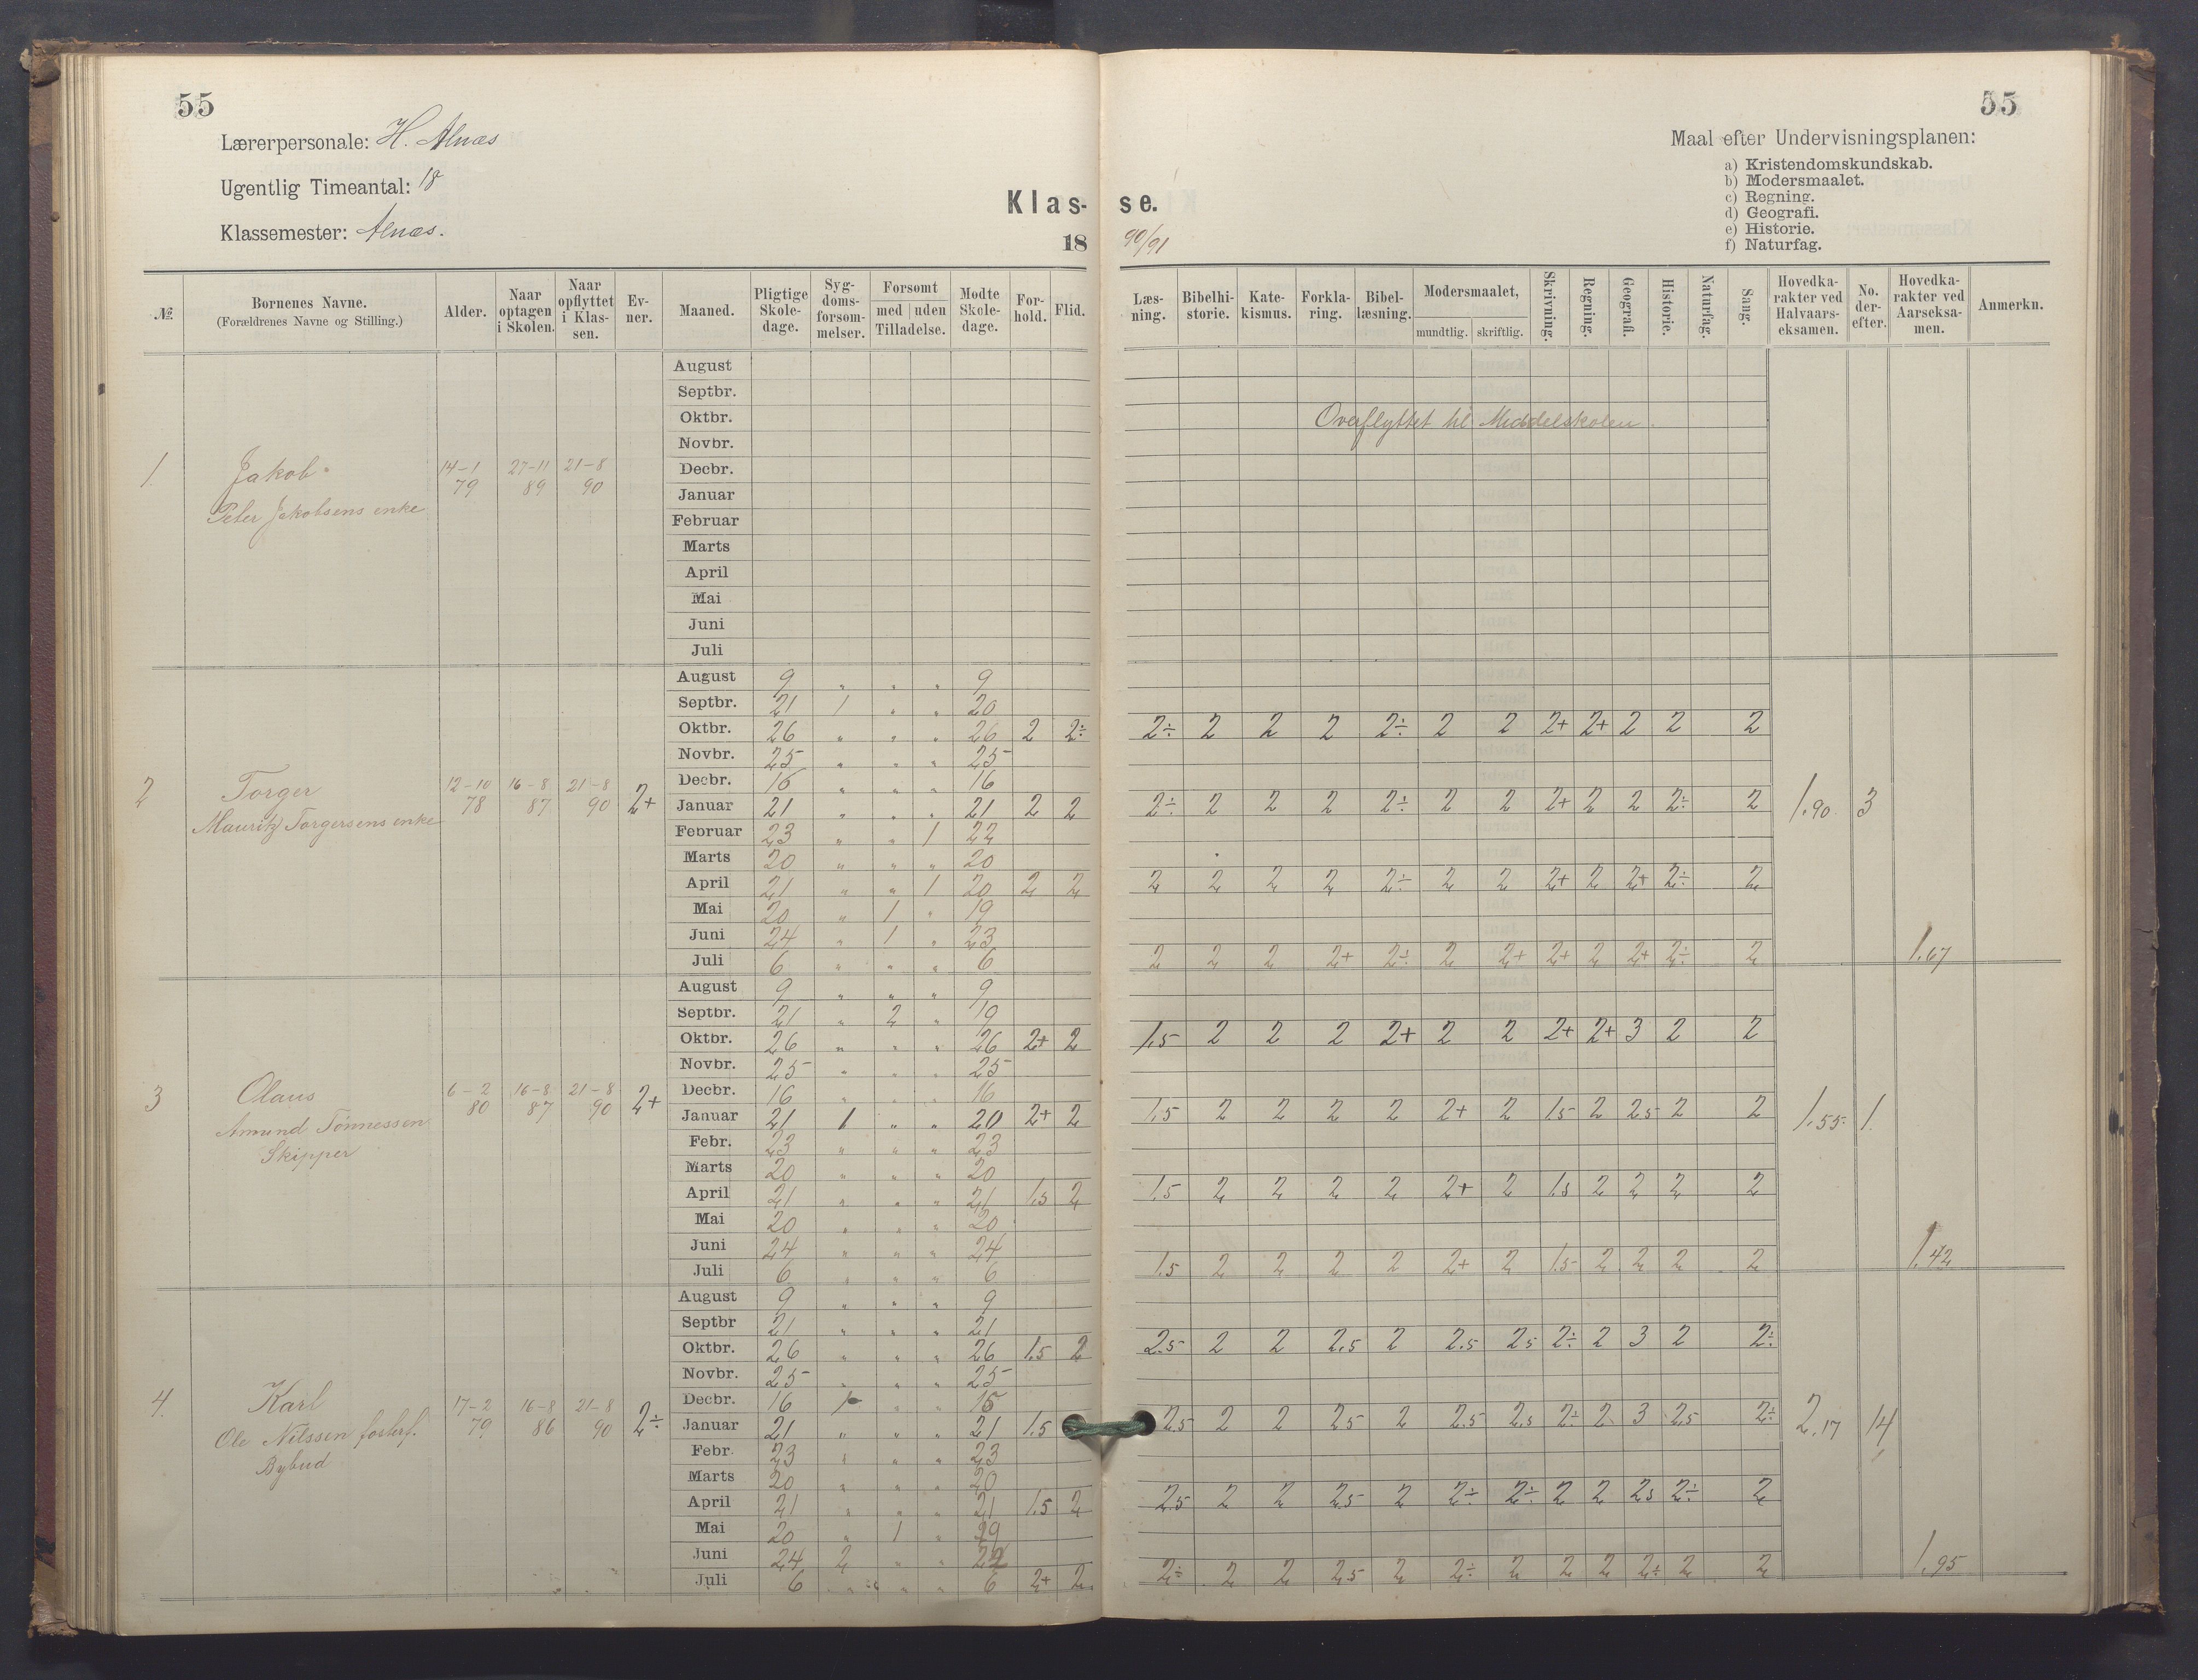 55
55
Lærerpersonale: H. Alnæs
Ugentlig Timeantal: 18
Klassemester: Alnæs.
Klas- se.
18 90/91
Maal efter Undervisningsplanen:
a) Kristendomskundskab.
b) Modersmaalet.
c) Regning.
d) Geografi.
e) Historie.
f) Naturfag.
№. Børnenes Navne. (Forældrenes Navne og Stilling.) Alder. Naar optagen i Skolen. Naar opflyttet i Klassen. Evner. Maaned. Pligtige Skoledage. Sygdomsforsømmelser. Forsømt med uden Tilladelse. Mødte Skoledage. Forhold. Flid. Læsning. Bibelhistorie. Katekismus. Forklaring. Bibellæsning. Modersmaalet, mundtlig. skriftlig. Skrivning. Regning. Geografi. Historie. Naturfag. Sang. Hovedkarakter ved Halvaarseksamen. No. derefter. Hovedkarakter ved Aarseksamen. Anmerkn.
August
Septbr.
Oktbr. Overflyttet til Middelskolen.
Novbr.
1. Jakob 14-1 79 27-11 89 21-8 90 Decbr.
Peter Jakobsens enke
Januar
Februar
Marts
April
Mai
Juni
Juli
August 9 " " " 9
Septbr. 21 1 " " 20
Oktbr. 26 " " " 26 2 2÷ 2÷ 2 2 2 2÷ 2 2 2+ 2+ 2 2 2
Novbr. 25 " " " 25
Decbr. 16 " " " 16
2 Torger 12-10 78 16-8 87 21-8 90 2+
Mauritz Torgersens enke
Januar 21 " " " 21 2 2 2÷ 2 2 2 2÷ 2 2 2+ 2 2 2÷ 2 1.90 3
Februar 23 " " 1 22
Marts 20 " " " 20
April 21 " " 1 20 2 2 2 2 2 2 2÷ 2 2 2+ 2 2+ 2÷ 2
Mai 20 " 1 " 19
Juni 24 " 1 " 23
Juli 6 " " " 6 2 2 2 2+ 2÷ 2 2+ 2+ 2 2+ 2÷ 2 1.67
August 9 " " " 9
Septbr. 21 " 2 " 19
Oktbr. 26 " " " 26 2+ 2 1.5 2 2 2 2+ 2 2 2+ 2+ 3 2 2
Novbr. 25 " " " 25
Decbr. 16 " " " 16
3 Olaus 6-2 80 16-8 87 21-8 90 2+
Amund Tønnessen
Skipper
Januar 21 1 " " 20 2+ 2 1.5 2 2 2 2 2+ 2 1.5 2 2.5 2 2 1.55 1.
Febr. 23 " " " 23
Marts 20 " " " 20
April 21 " " " 21 1.5 2 1.5 2 2 2 2 2+ 2 1.5 2 2 2 2
Mai 20 " " " 20
Juni 24 " " " 24
Juli 6 " " " 6 1.5 2 2 2 2 2+ 2 1.5 2 2 2 2 1.42
August 9 " " " 9
Septbr 21 " " " 21
Oktbr. 26 " " " 26 1.5 2 2.5 2 2 2.5 2 2.5 2.5 2÷ 2 3 2 2÷
Novbr. 25 " " " 25
Decbr. 16 1 " " 15
4. Karl 17-2 79 16-8 86 21-8 90 2÷
Ole Nilssen fosterf.
Bybud
Januar 21 " " " 21 1.5 2.5 2 2 2.5 2 2.5 2.5 2÷ 2 3 2.5 2÷ 2.17 14
Febr. 23 " " " 23
Marts 20 " " " 20
April 21 " " " 21 1.5 2 2.5 2 2 2.5 2 2÷ 2÷ 2 2 2.5 2÷ 2
Mai 20 " 1 " 19
Juni 24 2 " " 22
Juli 6 " " " 6 2+ 2 2÷ 2 2 2.5 2 2÷ 2 2 2 2÷ 2 2 1.95